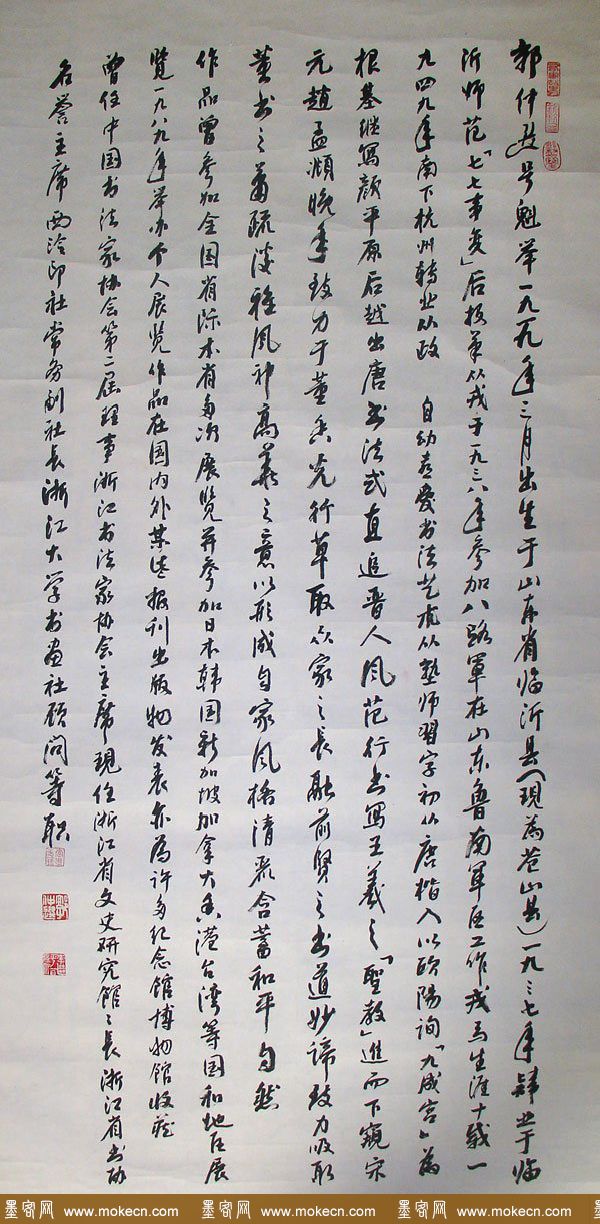 郭仲選号魁举一九一九年三月出生于山东省临沂县(現為苍山县)一九三七年肄业于临
沂师范「七七事变」后投笔从戎于一九三八年参加八路軍在山东鲁南軍区工作戎馬生涯十載一
九四九年南下杭州转业从政 自幼喜爱书法艺术从塾师習字初从唐楷入以欧陽詢「九成宫」為
根基继写颜平原后越出唐书法式直追晋人风范行书写王羲之「聖教」進而下窺宋
元趙孟頫晚年致力于董香光行草取众家之長融前賢之书道妙諦致力吸取
董书之蕭疏淡雅风神高華之意以形成自家风格清灵含蓄和平自然
作品曾参加全国省际本省多次展览并参加日本韩国新加坡加拿大香港台湾等国和地区展
览一九八九年举办个人展览作品在国内外某些报刊出版物发表亦為许多纪念館博物館收藏
曾任中国书法家协会第二届理事浙江书法家协会主席現任浙江省文史研究館館長浙江省书协
名誉主席西泠印社常务副社长浙江大学书画社顾问等职
墨客网 www.mokecn.com 墨客网 www.mokecn.com 墨客网 www.mokecn.com